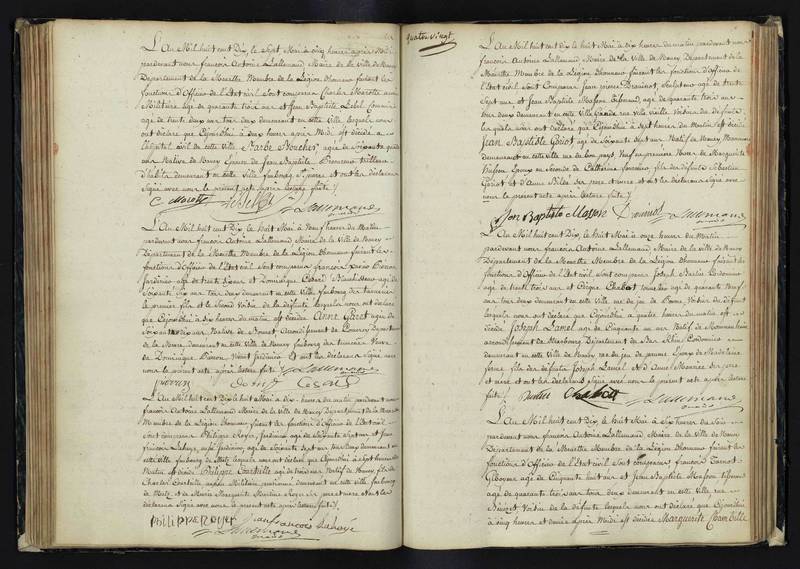 L'An Mil huit cent Dix, le Sept Mai à cinq heures après Midi
pardevant nous françois Antoine Lallemand Maire de la Ville de Nancy
Département de la Meurthe Membre de la Légion d'honneur faisant les
fonctions d'Officier de l'Etat civil Sont comparus Charles Marotte ancien
Militaire agé de quarante trois ans et Jean Baptiste Lebel
agé de trente deux ans tous deux demeurant en cette ville, lesquels nous
ont déclaré que Cejourd'hui à deux heures après Midi est décédée à
l'hôpital civil de cette Ville Barbe Boucher agée de Soixante
ans Native de Nancy Epouse de Jean Baptiste
d'habits demeurant en cette ville faubourg St. pierre et ont les déclarans
Signé avec nous le présent acte après lecture faite /.
C Marotte Lallemand
L'An Mil huit cent Dix, le huit Mai à Neuf heures du Matin
pardevant nous françois Antoine Lallemand Maire de la Ville de Nancy
Département de la Meurthe Membre de la Légion d'honneur faisant les
fonctions d'Officier de l'Etat civil Sont comparus françois
Jardinier agé de trente et Dominique Cesard agé de
Soixante Six ans tous deux demeurant en cette Ville faubourg
le premier fils et le Second Voisin de la défunte lesquels nous ont déclaré
que Cejourd'hui à Six heures du matin est décédée Anne Giret agée de
Soixante dix ans Native de Arrondissement de Commercy Département
de la Meuse, demeurant en cette Ville de Nancy faubourg Veuve
de Dominique Vivant Jardinier Et ont les déclarans Signé avec
nous le présent acte après lecture faite /. Lallemand
Domq Cesard
L'An Mil huit cent Dix le huit Mai à Dix heures du matin pardevant nous
françois Antoine Lallemand Maire de la Ville de Nancy Département de la Meurthe
Membre de la Légion d'honneur faisant les fonctions d'Officier de l'Etat civil
Sont comparus Philippe Royer, Jardinier agé de Soixante ans et Jean
françois Lahaye, aussi Jardinier agé de Soixante ans tous deux demeurant en
cette ville faubourg de Metz lesquels nous ont déclaré que Cejourd'hui à Sept heures du
Matin est décédé Philippe Courtville agé de trois ans Natif de Nancy, fils de
Charles Courtville ancien Militaire pensionné demeurant en cette ville, faubourg
de Metz, et de Marie Marguerite Martine Royer Ses père et mère et ont les
déclarans Signé avec nous le présent acte après lecture faite /.
PHILIPPE ROYER Jean francois Lahaye
Lallemand
quatre vingt
L'An Mil huit cent Dix le huit Mai à dix heures du matin pardevant nous
françois Antoine Lallemand Maire de la Ville de Nancy Département de la
Meurthe Membre de la Légion d'honneur faisant les fonctions d'Officier de
l'Etat civil Sont Comparus Jean Sculpteur agé de trente
Sept ans et Jean Baptiste Masson agé de quarante trois ans
tous deux demeurant en cette Ville Grande rue Ville Vieille Voisins du défunt
lesquels nous ont déclaré que Cejourd'hui à Sept heures du Matin est décédé
Jean Baptiste Goriot agé de Soixante Sept ans Natif de Nancy
demeurant en cette ville rue du bon pays, Veuf en premières Noces de Marguerite
Epoux en Secondes de Catherine fils des défunts Sébastien
Goriot et d'Anne Ses père et mère et ont les déclarans Signé avec
nous le présent acte après lecture faite /.
Jean Baptiste Masson Lallemand
L'An Mil huit cent Dix, le huit Mai à onze heures du Matin
pardevant nous françois Antoine Lallemand Maire de la ville de Nancy
Département de la Meurthe Membre de la Légion d'honneur faisant les
fonctions d'Officier de l'Etat civil Sont comparus Joseph Cordonnier
agé de trente trois ans et Grégoire Chabot agé de quarante Neuf
ans tous deux demeurant en cette Ville Voisins du défunt
lesquels nous ont déclaré que Cejourd'hui à quatre heures du matin est
décédé Joseph Lamel agé de Cinquante un ans Natif de
arrondissement de Strasbourg Département du Bas Rhin Cordonnier
demeurant en cette Ville de Nancy rue du jeu de paume Epoux de Madelaine
fils des défunts Joseph Lamel et d'Anne Ses père
et mère et ont les déclarans Signé avec nous le présent acte après lecture
faite /. Chabot Lallemand
L'An Mil huit cent Dix, le huit Mai à Six heures du Soir
pardevant nous françois Antoine Lallemand Maire de la Ville de Nancy
Département de la Meurthe Membre de la Légion d'honneur faisant les
fonctions d'Officier de l'Etat civil Sont comparus françois
agé de Cinquante huit ans et Jean Baptiste Masson
agé de quarante trois ans tous deux demeurant en cette Ville rue
Voisins de la défunte lesquels nous ont déclaré que Cejourd'hui
à cinq heures et demie après Midi est décédée Marguerite Chambille